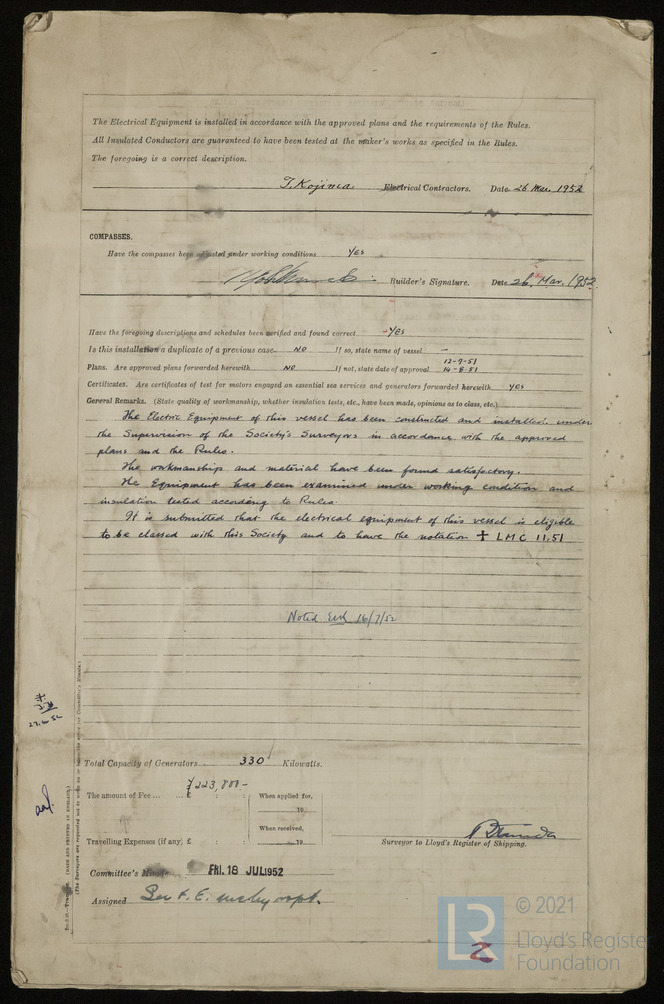 The Electrical Equipment is installed in accordance with the approved plans and the requirements of the Rules.
All Insulated Conductors are guaranteed to have been tested at the maker's works as specified in the Rules.
The foregoing is a correct description.
T. Kojima Electrical Contractors. Date 26 Mar. 1952
COMPASSES.
Have the compasses been adjusted under working conditions YES
Builder's Signature. Date 26. Mar. 1952
Have the foregoing descriptions and schedules been verified and found correct YES
Is this installation a duplicate of a previous case NO If so, state name of vessel -
12-7-51
Plans. Are approved plans forwarded herewith NO If not, state date of approval 14-8-51
Certificates. Are certificates of test for motors engaged on essential sea services and generators forwarded herewith YES
General Remarks. (State quality of workmanship, whether insulation tests, etc., have been made, opinions as to class, etc.)
The Electric Equipment of this vessel has been constructed and installed under
the Supervision of the Society's Surveyors in accordance with the approved
plans and the Rules.
The workmanship and material have been found satisfactory.
The Equipment has been examined under working condition and
insulation tested according to Rules.
It is submitted that the electrical equipment of this vessel is eligible
to be classed with this Society and to have the notation ✝ LMC 11.51
Noted 16/7/52
27.6.52
Total Capacity of Generators 330 Kilowatts.
¥223,800.-
The amount of Fee ... ... £ : : When applied for,
19
When received,
Travelling Expenses (if any) £ : : 19
Surveyor to Lloyd's Register of Shipping.
Committee's Minute FRI. 18 JUL 1952
Assigned See F. E. mchy rept.
(MADE AND PRINTED IN ENGLAND.)
(The Surveyors are requested not to write on or below the space for Committee's Minute.)
2
LR
© 2021
Lloyd's Register
Foundation